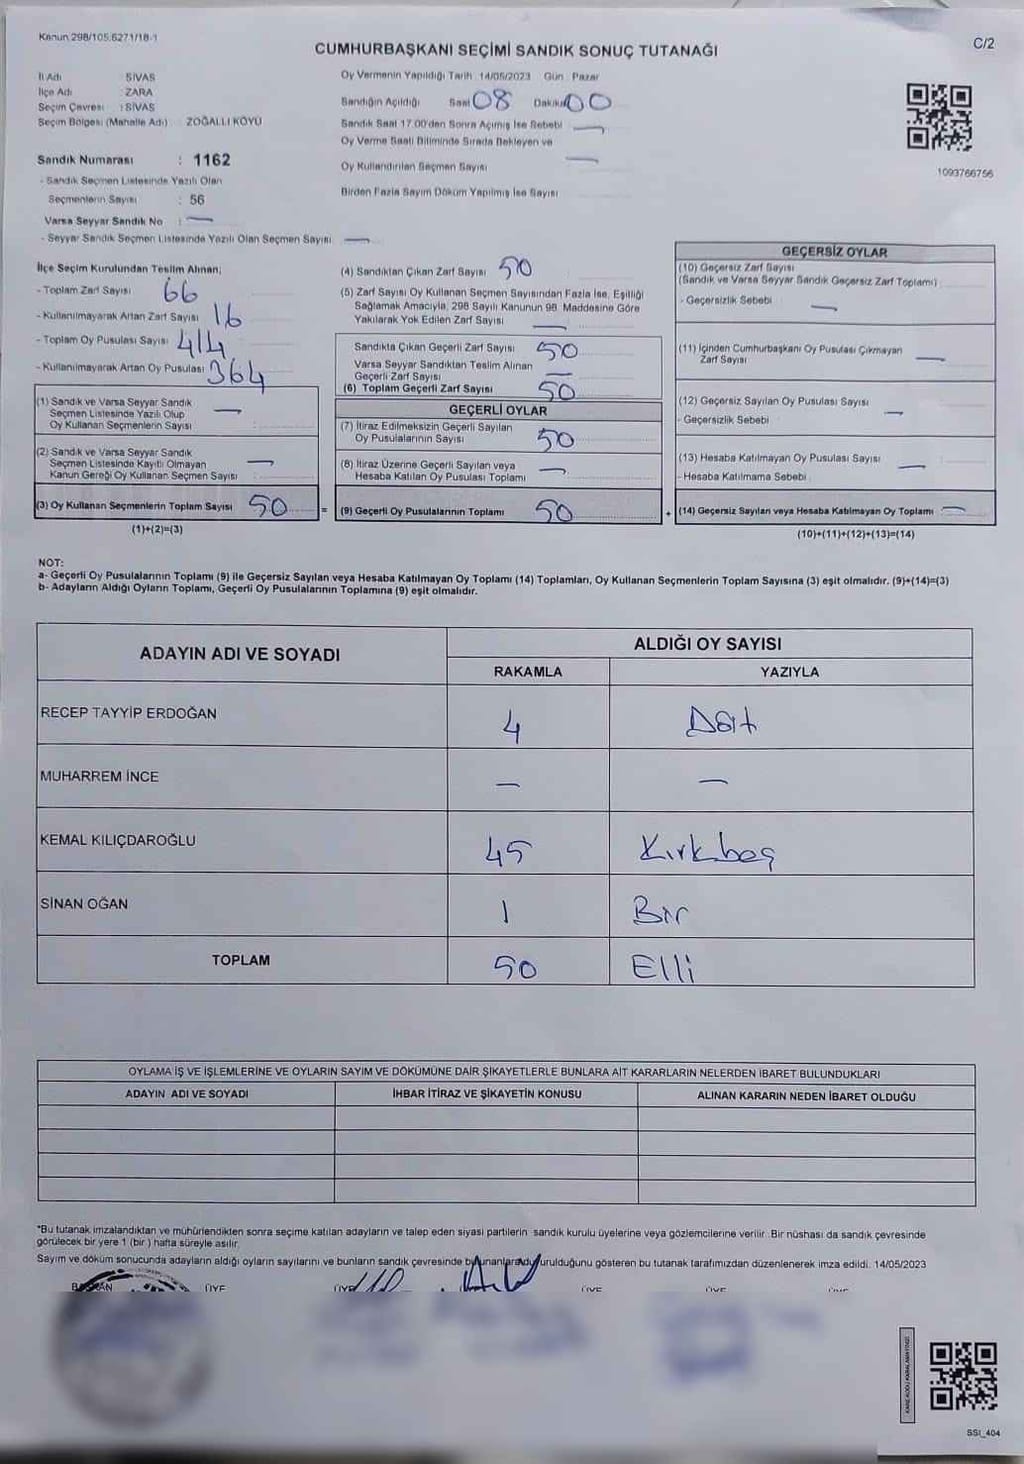 Kanun 298/105,6271/18-1
C/2
CUMHURBAŞKANI SEÇİMİ SANDIK SONUÇ TUTANAĞI
İl Adı : SİVAS
İlçe Adı : ZARA
Seçim Çevresi : SİVAS
Seçim Bölgesi (Mahalle Adı) : ZOĞALLI KÖYÜ
Sandık Numarası : 1162
- Sandık Seçmen Listesinde Yazılı Olan
Seçmenlerin Sayısı : 56
Varsa Seyyar Sandık No : —
- Seyyar Sandık Seçmen Listesinde Yazılı Olan Seçmen Sayısı —
Oy Vermenin Yapıldığı Tarih : 14/05/2023 Gün : Pazar
Sandığın Açıldığı Saat 08 Dakika 00
Sandık Saat 17.00'den Sonra Açılmış İse Sebebi —
Oy Verme Saati Bitiminde Sırada Bekleyen ve
Oy Kullandırılan Seçmen Sayısı —
Birden Fazla Sayım Döküm Yapılmış İse Sayısı
1093766756
İlçe Seçim Kurulundan Teslim Alınan;
- Toplam Zarf Sayısı 66
- Kullanılmayarak Artan Zarf Sayısı 16
- Toplam Oy Pusulası Sayısı 414
- Kullanılmayarak Artan Oy Pusulası 364
(1) Sandık ve Varsa Seyyar Sandık
Seçmen Listesinde Yazılı Olup
Oy Kullanan Seçmenlerin Sayısı : —
(2) Sandık ve Varsa Seyyar Sandık
Seçmen Listesinde Kayıtlı Olmayan
Kanun Gereği Oy Kullanan Seçmen Sayısı : —
(3) Oy Kullanan Seçmenlerin Toplam Sayısı 50
(1)+(2)=(3)
(4) Sandıktan Çıkan Zarf Sayısı 50
(5) Zarf Sayısı Oy Kullanan Seçmen Sayısından Fazla İse, Eşitliği
Sağlamak Amacıyla, 298 Sayılı Kanunun 98. Maddesine Göre
Yakılarak Yok Edilen Zarf Sayısı —
Sandıkta Çıkan Geçerli Zarf Sayısı 50
Varsa Seyyar Sandıktan Teslim Alınan
Geçerli Zarf Sayısı —
(6) Toplam Geçerli Zarf Sayısı 50
GEÇERLİ OYLAR
(7) İtiraz Edilmeksizin Geçerli Sayılan
Oy Pusulalarının Sayısı 50
(8) İtiraz Üzerine Geçerli Sayılan veya
Hesaba Katılan Oy Pusulası Toplamı —
= (9) Geçerli Oy Pusulalarının Toplamı 50
GEÇERSİZ OYLAR
(10) Geçersiz Zarf Sayısı
(Sandık ve Varsa Seyyar Sandık Geçersiz Zarf Toplamı)
- Geçersizlik Sebebi —
(11) İçinden Cumhurbaşkanı Oy Pusulası Çıkmayan
Zarf Sayısı —
(12) Geçersiz Sayılan Oy Pusulası Sayısı —
- Geçersizlik Sebebi
(13) Hesaba Katılmayan Oy Pusulası Sayısı —
- Hesaba Katılmama Sebebi
+ (14) Geçersiz Sayılan veya Hesaba Katılmayan Oy Toplamı —
(10)+(11)+(12)+(13)=(14)
NOT:
a- Geçerli Oy Pusulalarının Toplamı (9) ile Geçersiz Sayılan veya Hesaba Katılmayan Oy Toplamı (14) Toplamları, Oy Kullanan Seçmenlerin Toplam Sayısına (3) eşit olmalıdır. (9)+(14)=(3)
b- Adayların Aldığı Oyların Toplamı, Geçerli Oy Pusulalarının Toplamına (9) eşit olmalıdır.
ADAYIN ADI VE SOYADI
ALDIĞI OY SAYISI
RAKAMLA YAZIYLA
RECEP TAYYİP ERDOĞAN 4 Dört
MUHARREM İNCE — —
KEMAL KILIÇDAROĞLU 45 Kırkbeş
SİNAN OĞAN 1 Bir
TOPLAM 50 Elli
OYLAMA İŞ VE İŞLEMLERİNE VE OYLARIN SAYIM VE DÖKÜMÜNE DAİR ŞİKAYETLERLE BUNLARA AİT KARARLARIN NELERDEN İBARET BULUNDUKLARI
ADAYIN ADI VE SOYADI İHBAR İTİRAZ VE ŞİKAYETİN KONUSU ALINAN KARARIN NEDEN İBARET OLDUĞU
"Bu tutanak imzalandıktan ve mühürlendikten sonra seçime katılan adayların ve talep eden siyasi partilerin sandık kurulu üyelerine veya gözlemcilerine verilir. Bir nüshası da sandık çevresinde
görülecek bir yere 1 (bir) hafta süreyle asılır.
Sayım ve döküm sonucunda adayların aldığı oyların sayılarını ve bunların sandık çevresinde bulunanlara duyurulduğunu gösteren bu tutanak tarafımızdan düzenlenerek imza edildi. 14/05/2023
BAŞKAN ÜYE ÜYE ÜYE ÜYE
SSI_404